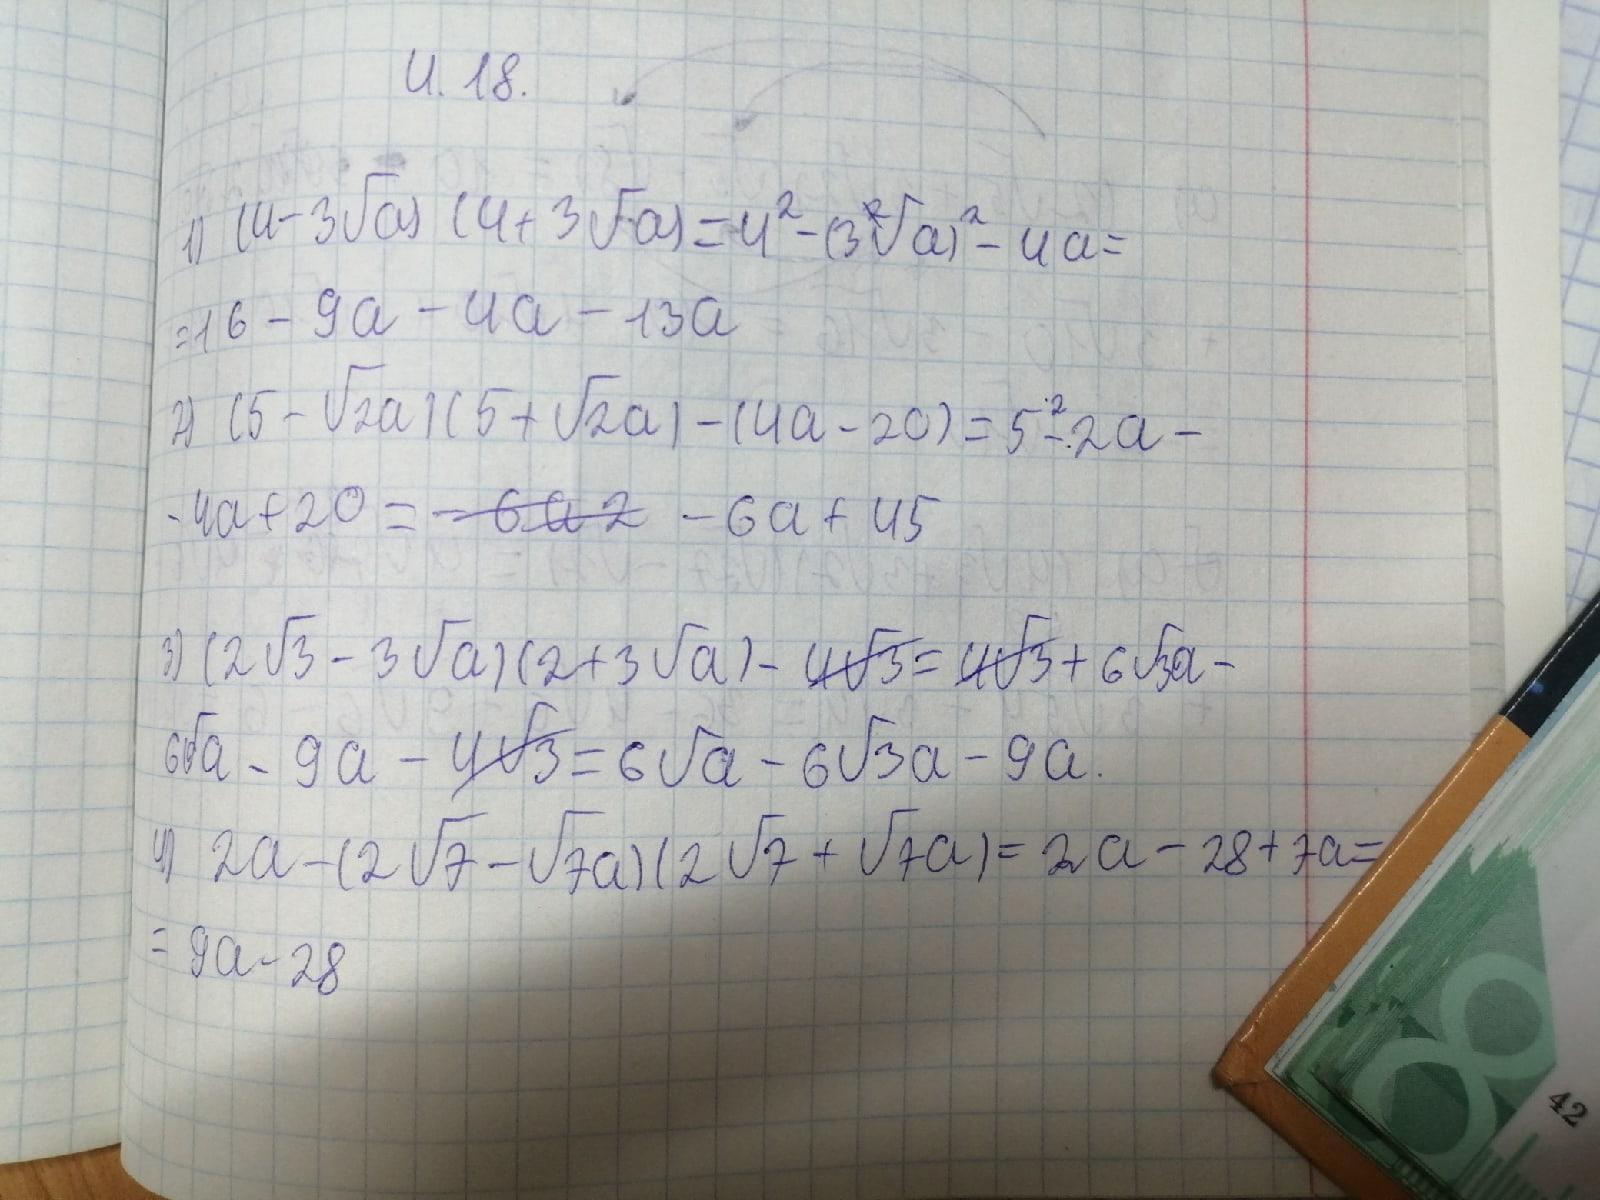 4.18.
1) (4-3√a) (4+3√a)=4²-(3√a)²-4a=
=16-9a-4a-13a
2) (5-√2a)(5+√2a)-(4a-20)=5²-2a-
-4a+20=-6a2 -6a+45
3) (2√3-3√a)(2+3√a)-4√3=4√3+6√3a-
6√a-9a-4√3=6√a-6√3a-9a.
4) 2a-(2√7-√7a)(2√7+√7a)=2a-28+7a=
=9a-28
8
42